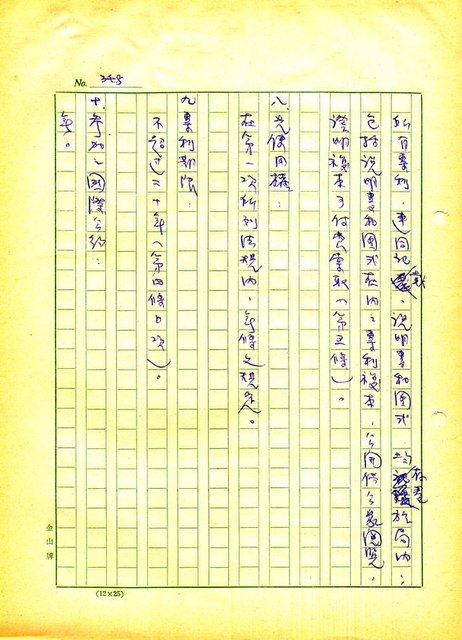 No. 348
所有專利，連同記載、說明書和圖式，均存查於局內；
包括說明書和圖式在內之專利複本，公開供公眾閱覽，
證明複本可付費索取（第五條）。
八、先使用權：
在第一次所列法規內，無條文規定。
九、專利期限：
不超過二十年（第四條日次）。
十、參加之國際公約：
無。
金山牌
(12×25)